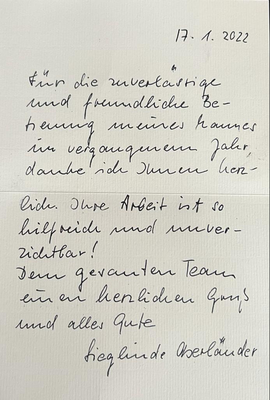 17. 1. 2022
Für die zuverlässige
und freundliche Be-
treuung meines Mannes
im vergangenem Jahr,
danke ich Ihnen herz-
lich. Ihre Arbeit ist so
hilfreich und unver-
zichtbar!
Dem gesamten Team
einen herzlichen Gruß
und alles Gute
Sieglinde Oberländer